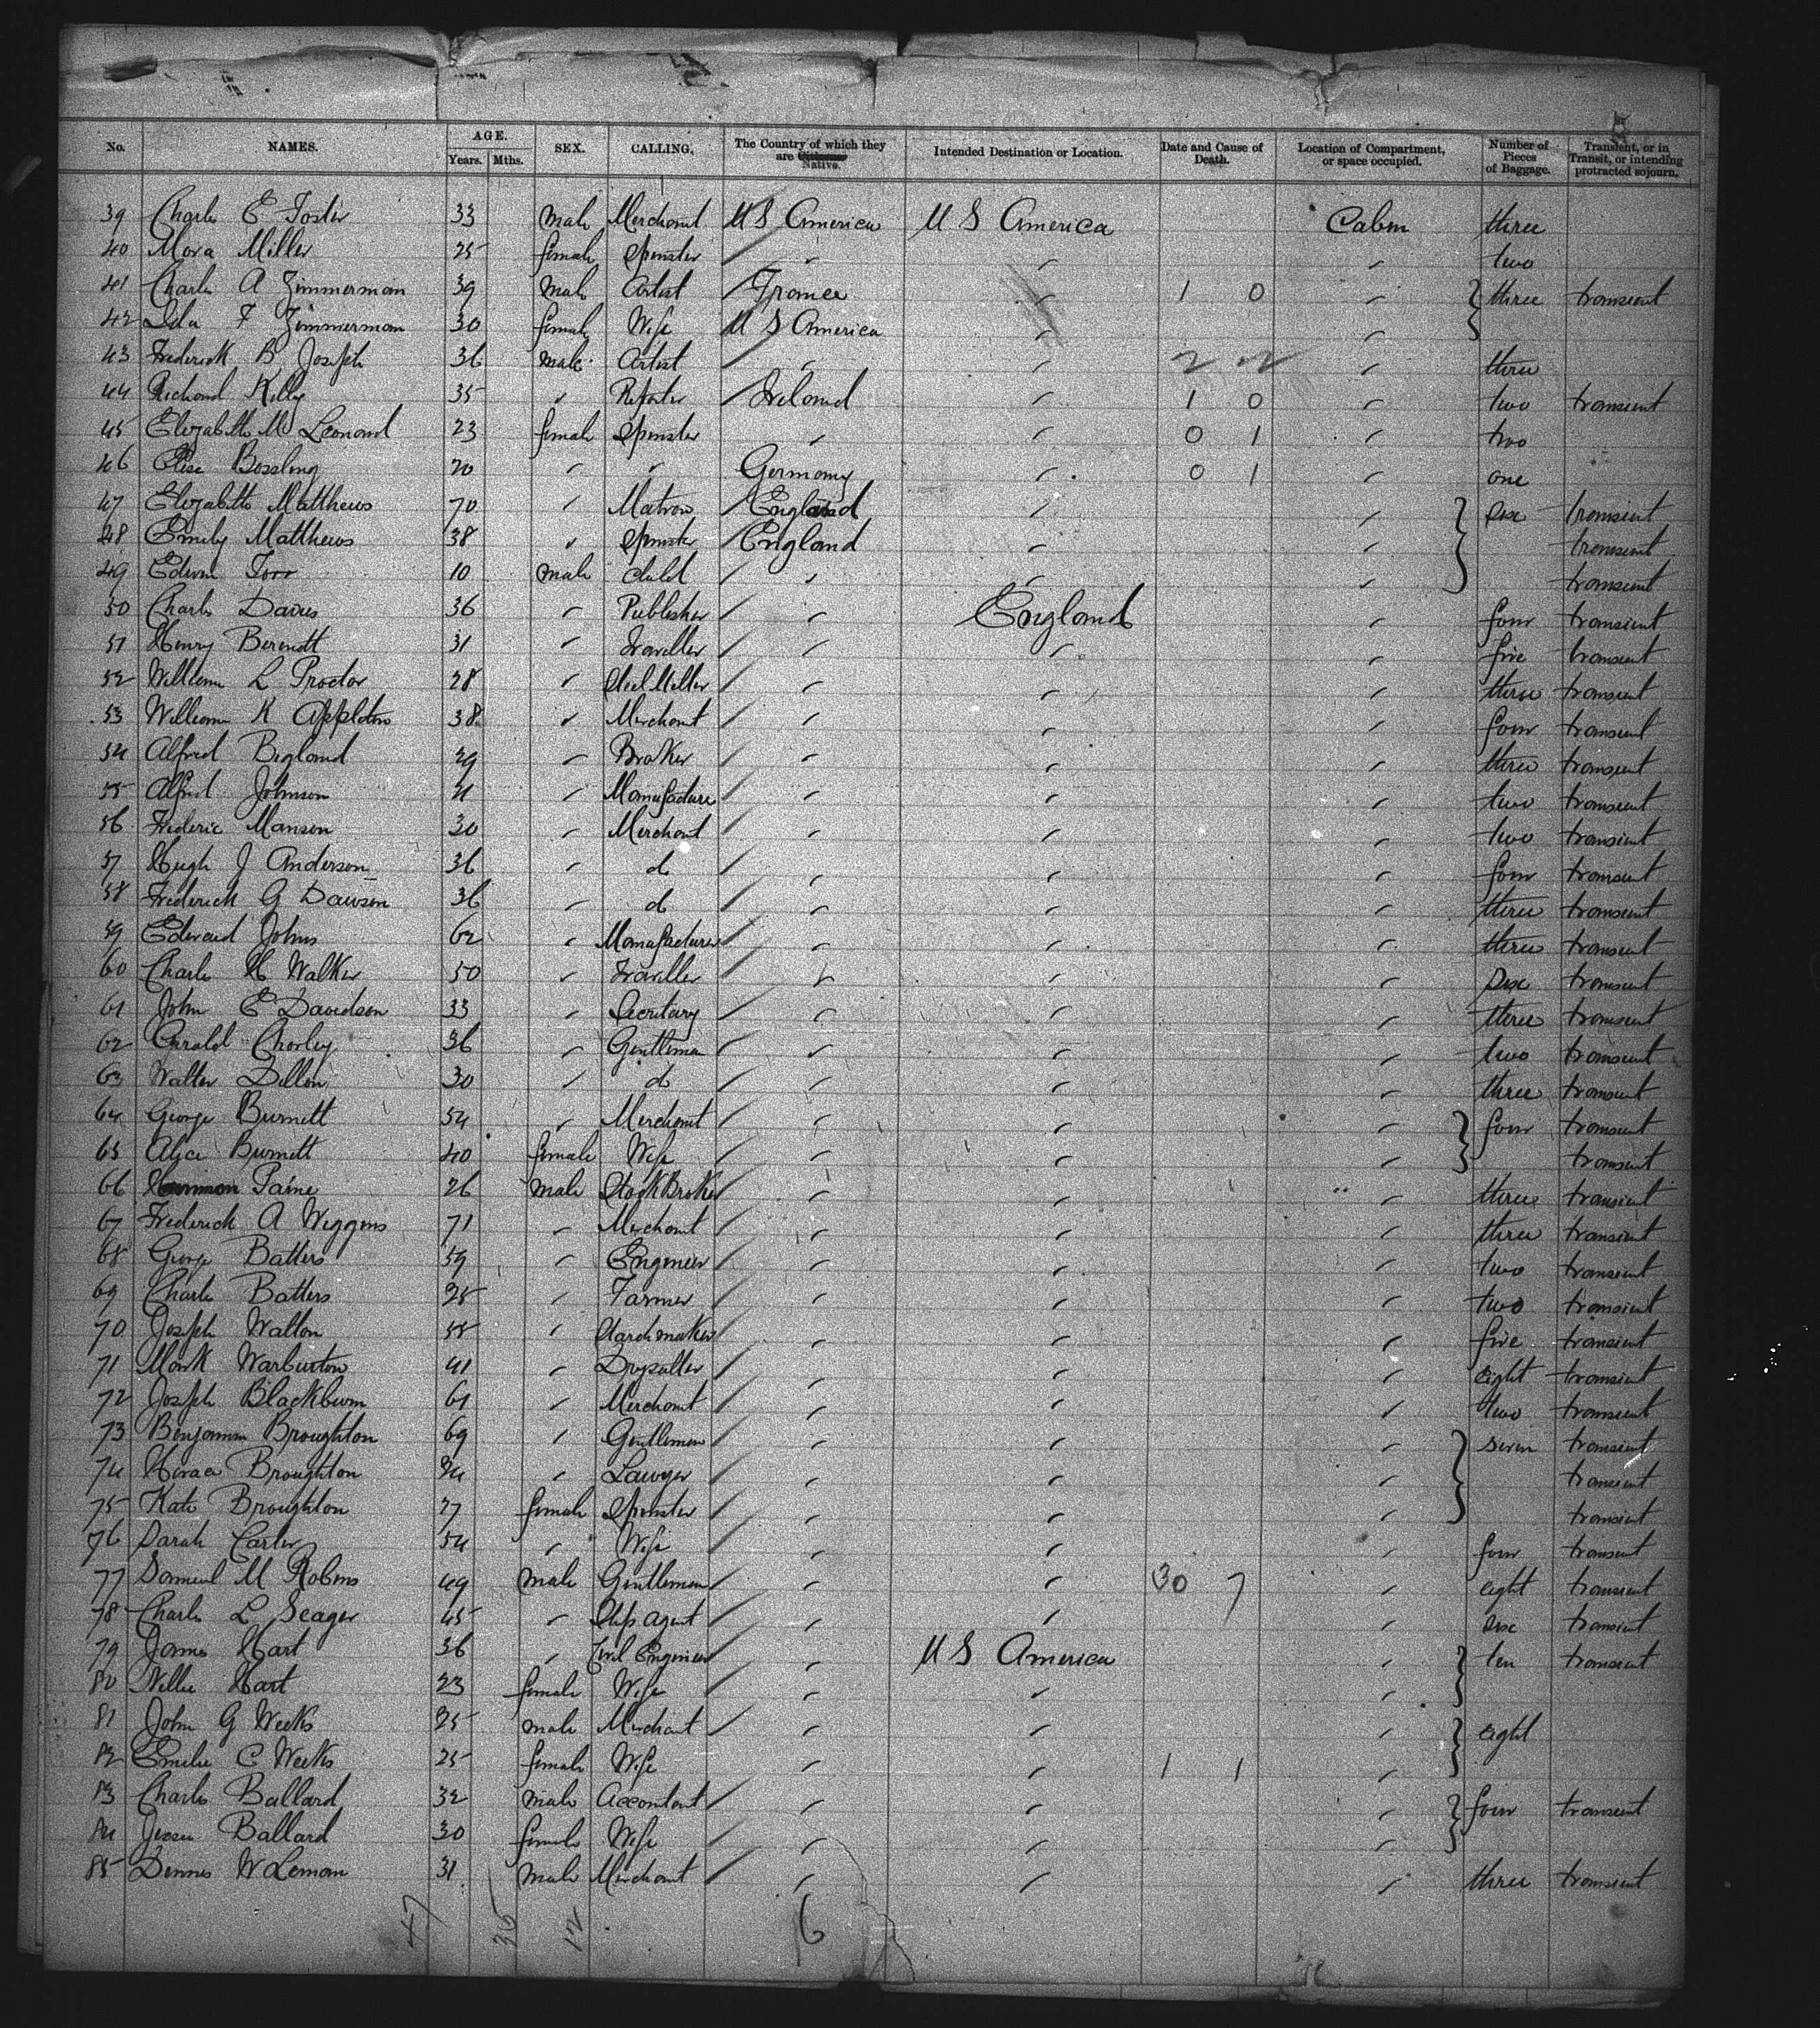 No. NAMES. AGE. Years. Mths. SEX. CALLING. The Country of which they are Citizens Native. Intended Destination or Location. Date and Cause of Death. Location of Compartment, or space occupied. Number of Pieces of Baggage. Transient, or in Transit, or intending protracted sojourn.
39 Charles E Foster 33 male Merchant U S America U S America Cabin three
40 Mora Miller 25 female Spinster " " " two
41 Charles A Zimmerman 39 male Artist France " 1 0 " three transient
42 Ida F Zimmerman 30 female Wife U S America " "
43 Frederick B Joseph 36 male Artist " " 2 " three
44 Richard Kelly 35 " Reporter Ireland " 1 0 " two transient
45 Elizabeth M Leonard 23 female Spinster " " 0 1 " two
46 Elise Bossling 20 " " Germany " 0 1 " one
47 Elizabeth Matthews 70 " Matron England " " six transient
48 Emily Matthews 38 " Spinster England " " transient
49 Edwin Torr 10 male child " " " transient
50 Charles Davies 36 " Publisher " England " four transient
51 Henry Berendt 31 " Traveller " " " five transient
52 William L Proctor 28 " " " " three transient
53 William K Appleton 38 " Merchant " " " four transient
54 Alfred Bigland 29 " Broker " " " three transient
55 Alfred Johnson " Manufacturer " " " two transient
56 Frederic Manson 30 " Merchant " " " two transient
57 Hugh J Anderson 36 " do " " " four transient
58 Frederick G Dawson 36 " do " " " three transient
59 Edward Johns 62 " Manufacturer " " " three transient
60 Charles H Walker 50 " Traveller " " " six transient
61 John E Davidson 33 " Secretary " " " three transient
62 Gerald Chorley 36 " Gentleman " " " two transient
63 Walter Dillon 30 " do " " " three transient
64 George Burnett 54 " Merchant " " " four transient
65 Alice Burnett 40 female Wife " " " transient
66 Paine 26 male Stock Broker " " " three transient
67 Frederick A Wiggins 71 " Merchant " " " three transient
68 George Batters 59 " Engineer " " " two transient
69 Charles Batters 25 " Farmer " " " two transient
70 Joseph Walton 55 " Starch maker " " " five transient
71 Mark Warburton 41 " Drysalter " " " eight transient
72 Joseph Blackburn 61 " Merchant " " " two transient
73 Benjamin Broughton 69 " Gentleman " " " seven transient
74 Horace Broughton 34 " Lawyer " " " transient
75 Kate Broughton 27 female Spinster " " " transient
76 Sarah Carter 54 " Wife " " " four transient
77 Samuel M Robins 49 male Gentleman " " 30 7 " eight transient
78 Charles L Seager 45 " Ship agent " " " six transient
79 James Hart 36 " Civil Engineer " U S America " ten transient
80 Nellie Hart 23 female Wife " " "
81 John G Weeks 25 male Merchant " " " eight
82 Emilie C Weeks 25 female Wife " " 1 1 "
83 Charles Ballard 32 male Accountant " " " four transient
84 Jessie Ballard 30 female Wife " " "
85 Dennis W Leman 31 male Merchant " " " three transient
47 35 12 6